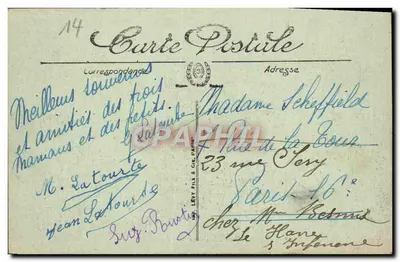 14
Carte Postale
Correspondance
Adresse
Meilleurs souvenirs
et amitiés des trois
Mamans et des petits.
G Latourte
M. Latourte
Jean Latourte
Suz.
LÉVY FILS & Cie, PARIS
Madame Scheffield
7 Rue de la Tour
23 rue
Paris 16e
chez Mme
Le Havre
S Inférieure